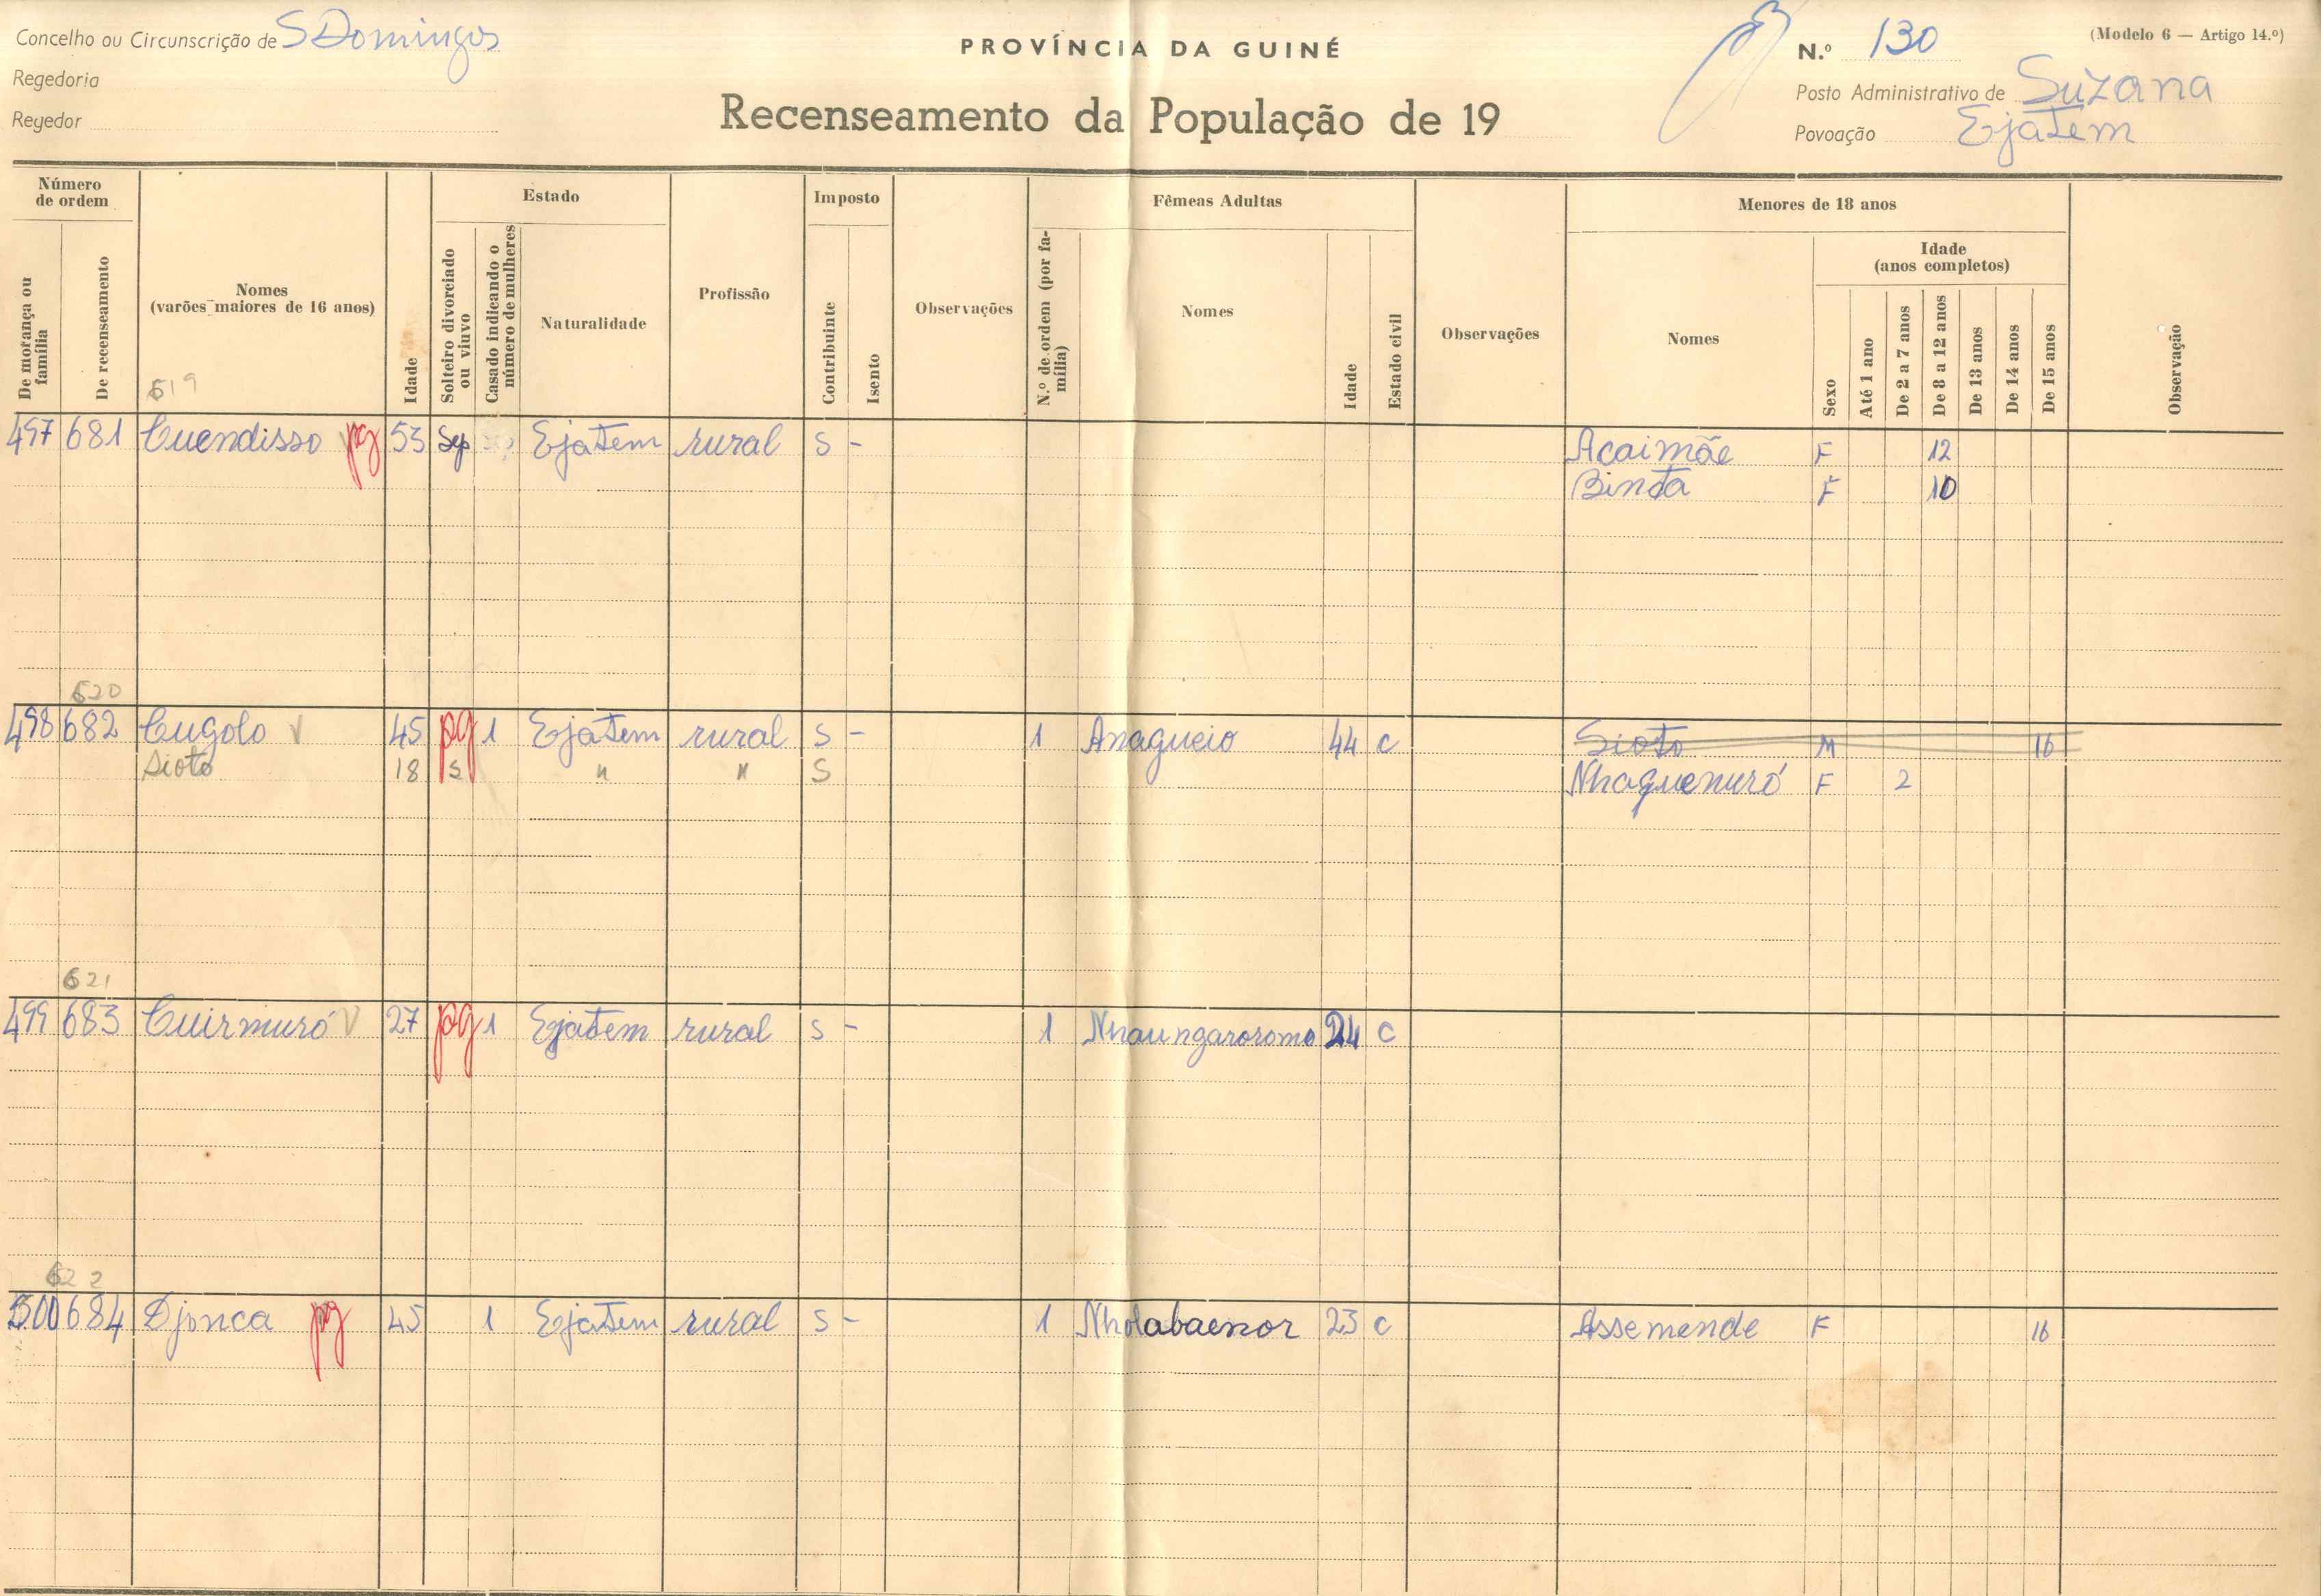 Concelho ou Circunscrição de S Domingos
PROVÍNCIA DA GUINÉ
N.º 130
(Modelo 6 — Artigo 14.º)
Regedoria
Posto Administrativo de Suzana
Regedor
Recenseamento da População de 19
Povoação Ejatem
Número de ordem
De morança ou família
De recenseamento
Nomes
(varões maiores de 16 anos)
Idade
Estado
Solteiro divorciado ou viuvo
Casado indicando o número de mulheres
Naturalidade
Profissão
Imposto
Contribuinte
Isento
Observações
Fêmeas Adultas
N.º de ordem (por família)
Nomes
Idade
Estado civil
Observações
Menores de 18 anos
Nomes
Sexo
Idade
(anos completos)
Até 1 ano
De 2 a 7 anos
De 8 a 12 anos
De 13 anos
De 14 anos
De 15 anos
Observação
619
497 681 Cuendisso pg 53 Sep Ejatem rural S - Acaimãe F 12
Binta F 10
620
498 682 Cugolo V 45 pg 1 Ejatem rural S - 1 Anagueio 44 C Sioto M 16
Sioto 18 S " " S Nhaguenuró F 2
621
499 683 Cuirmuró V 27 pg 1 Ejatem rural S - 1 Nhaungaroromo 24 C
622
500 684 Djonca pg 45 1 Ejatem rural S - 1 Nholabaenor 23 C Assemende F 16